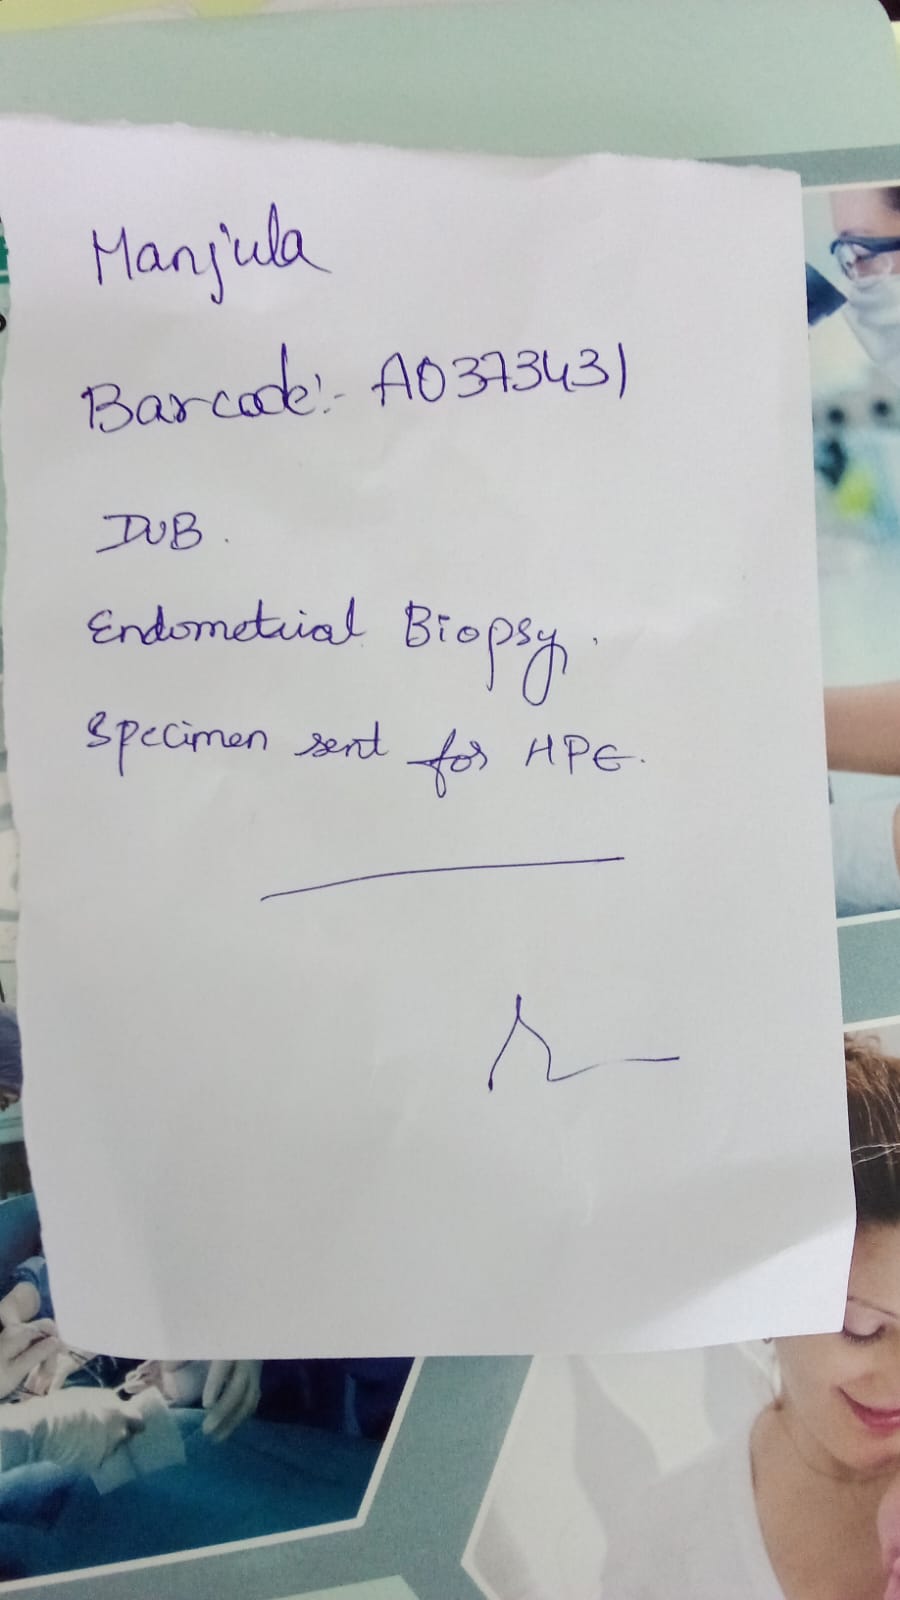 Manjula
Barcode:- A0373431
DUB.
Endometrial Biopsy.
Specimen sent for HPE.